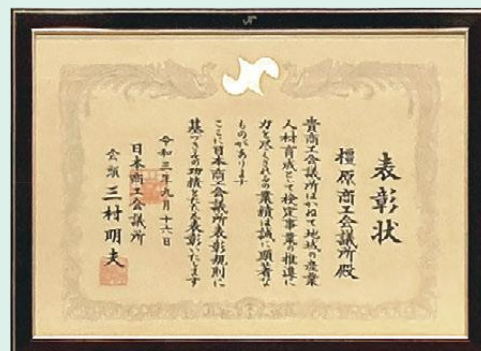 表彰状
橿原商工会議所殿
貴商工会議所はかねて地域の産業
人材育成として検定事業の推進に
力を尽くされその業績は誠に顕著な
ものがあります
ここに日本商工会議所表彰規則に
基づきその功績をたたえ表彰いたします
令和三年九月十六日
日本商工会議所
会頭 三村明夫